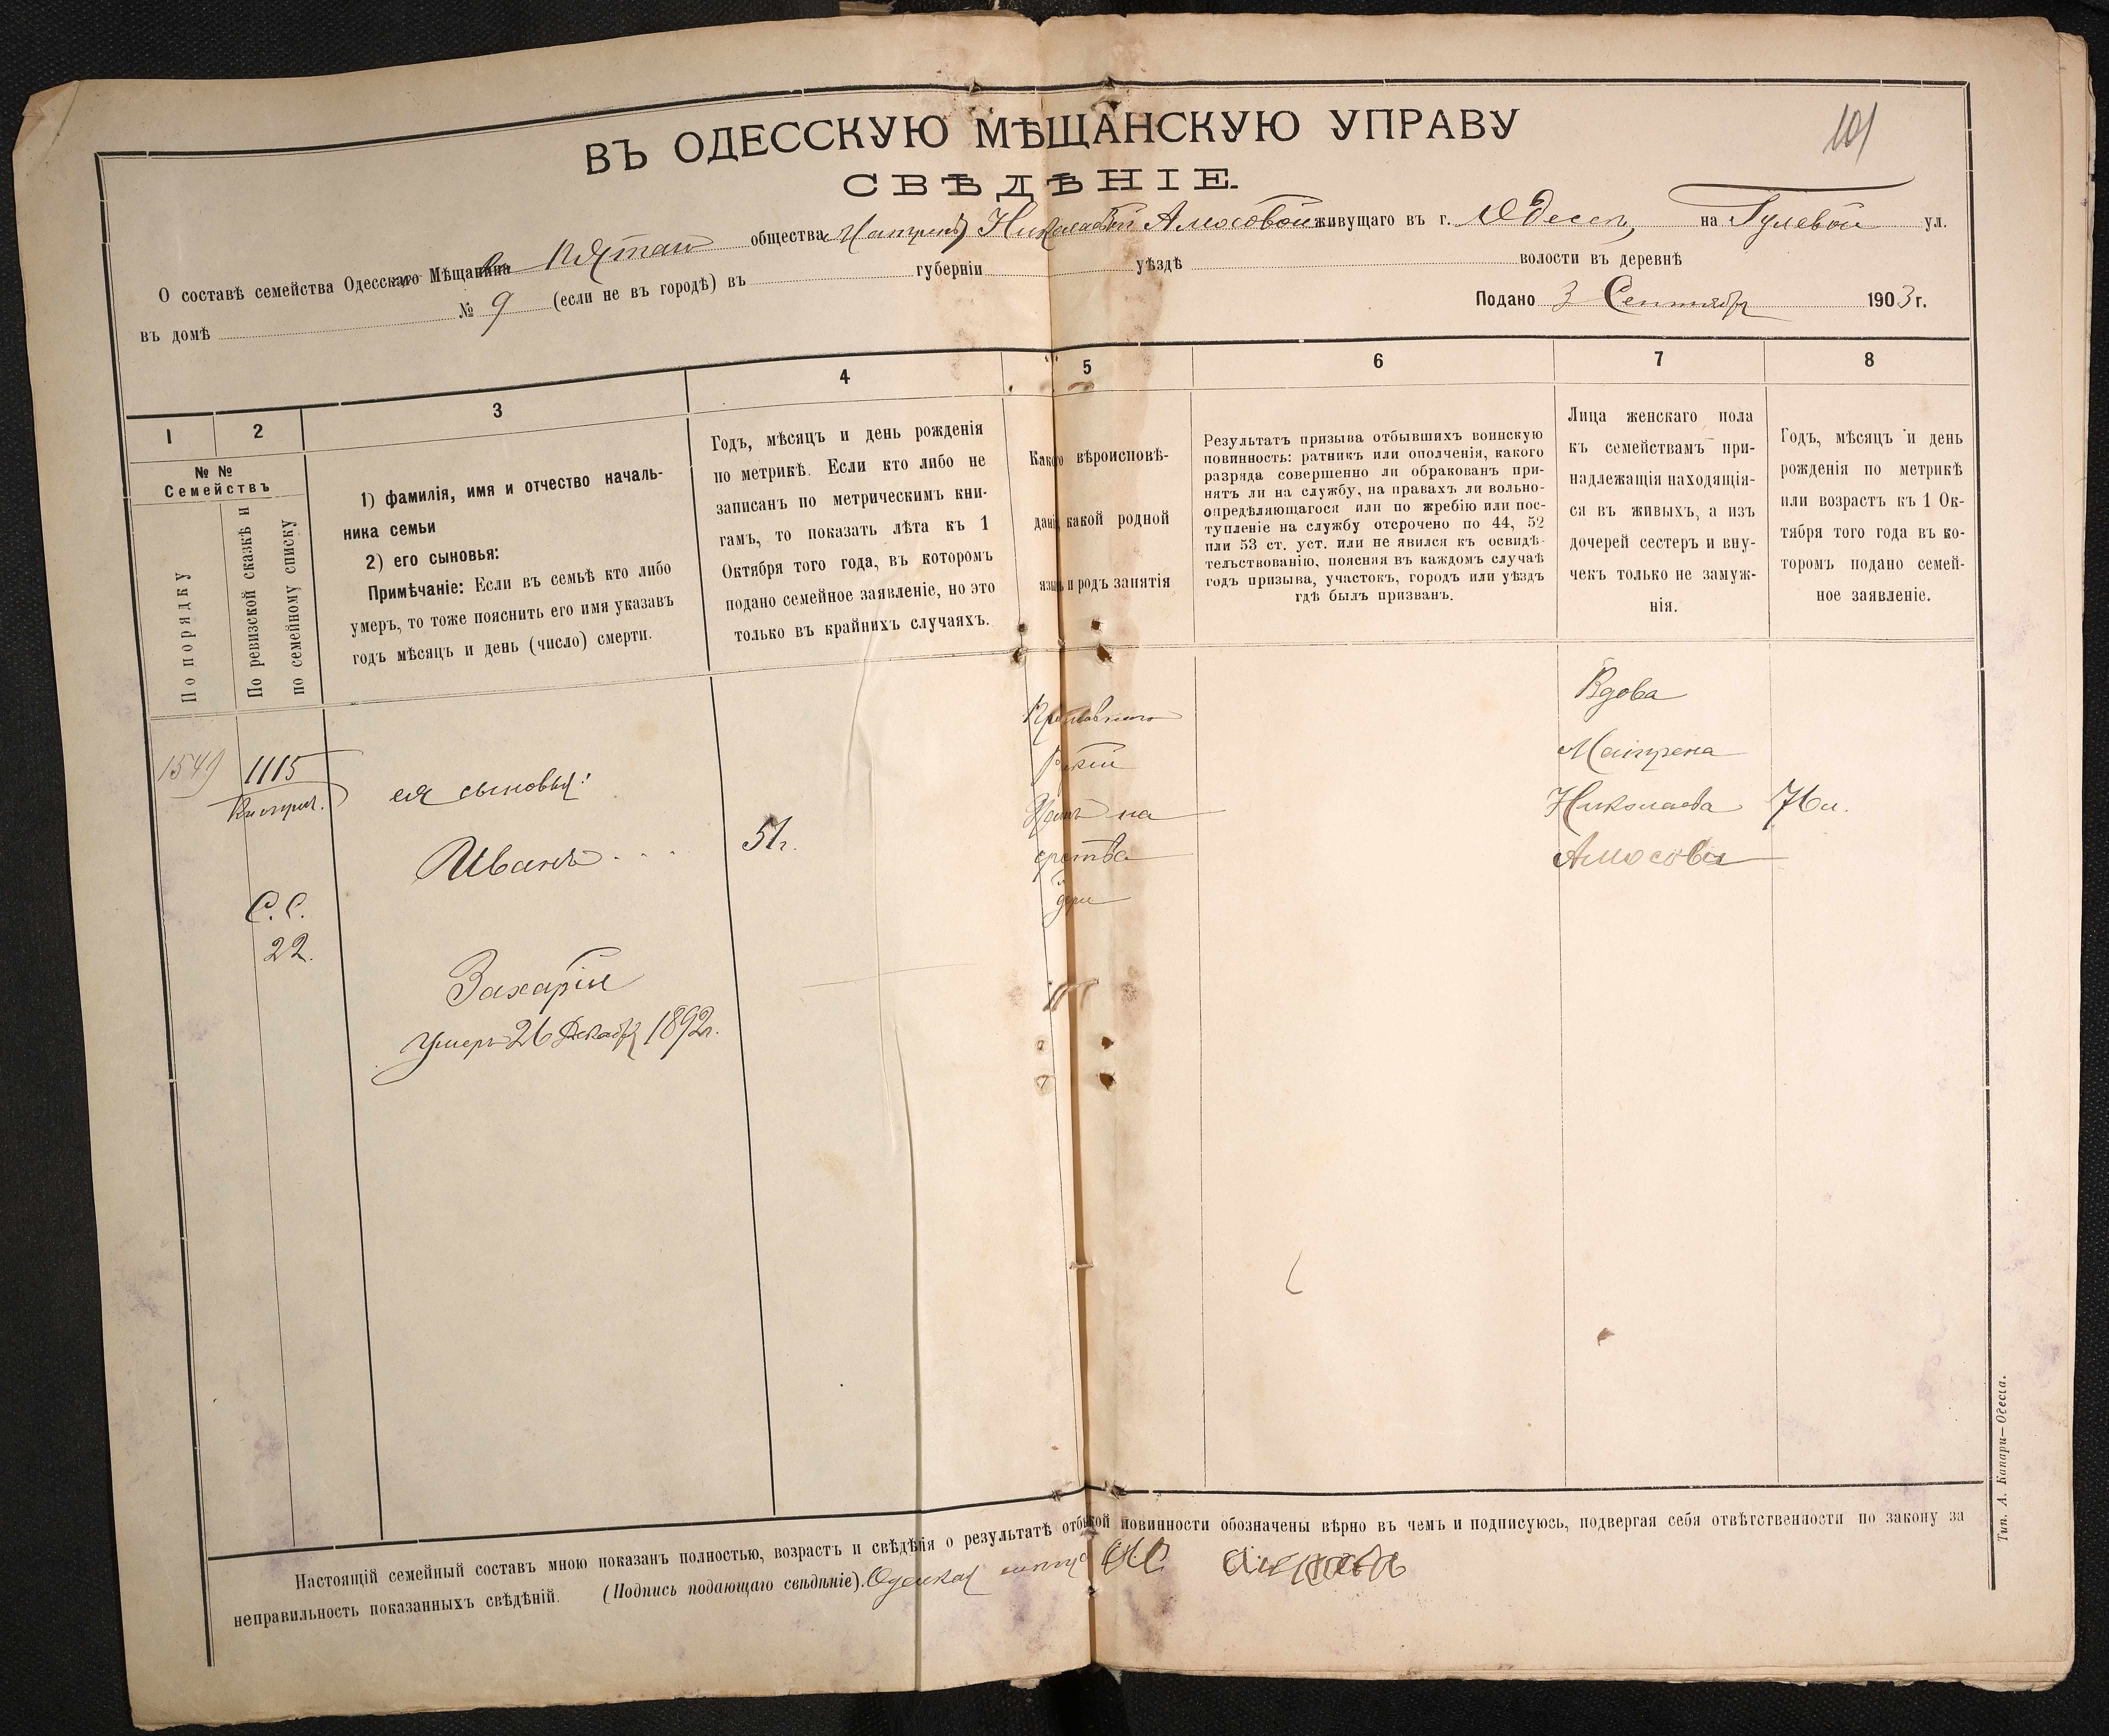 101
ВЪ ОДЕССКУЮ МѢЩАНСКУЮ УПРАВУ
СВѢДѢНІЕ.
О составѣ семейства Одесскаго Мѣщанина общества Николаевой Амосовой живущаго въ г. Одессѣ, на Гулевой ул.
въ домѣ № 9 (если не въ городѣ) въ губерніи уѣздѣ волости въ деревнѣ
Подано 3 Сентября 1903 г.
1 2 3 4 5 6 7 8
№ №
Семействъ
По порядку
По ревизской сказкѣ и
по семейному списку
1) фамилія, имя и отчество началь-
ника семьи
2) его сыновья:
Примѣчаніе: Если въ семьѣ кто либо
умеръ, то тоже пояснить его имя указавъ
годъ мѣсяцъ и день (число) смерти.
Годъ, мѣсяцъ и день рожденія
по метрикѣ. Если кто либо не
записанъ по метрическимъ кни-
гамъ, то показать лѣта къ 1
Октября того года, въ которомъ
подано семейное заявленіе, но это
только въ крайнихъ случаяхъ.
Какого вѣроисповѣ-
данія, какой родной
языкъ и родъ занятія
Результатъ призыва отбывшихъ воинскую
повинность: ратникъ или ополченія, какого
разряда совершенно ли обракованъ при-
нятъ ли на службу, на правахъ ли вольно-
опредѣляющагося или по жребію или пос-
тупленіе на службу отсрочено по 44, 52
или 53 ст. уст. или не явился къ освидѣ-
тельствованію, поясняя въ каждомъ случаѣ
годъ призыва, участокъ, городъ или уѣздъ
гдѣ былъ призванъ.
Лица женскаго пола
къ семействамъ при-
надлежащія находящія-
ся въ живыхъ, а изъ
дочерей сестеръ и вну-
чекъ только не замуж-
нія.
Годъ, мѣсяцъ и день
рожденія по метрикѣ
или возрастъ къ 1 Ок-
тября того года въ ко-
торомъ подано семей-
ное заявленіе.
1549
1115
С.С.
22.
ея сыновья:
Иванъ
51г.
Захарій
умеръ 26 Декабря 1892г.
Вдова
Матрена
Николаева
Амосова
76л.
Настоящій семейный составъ мною показанъ полностью, возрастъ и свѣдѣнія о результатѣ отбытой повинности обозначены вѣрно въ чемъ и подписуюсь, подвергая себя отвѣтственности по закону за
неправильность показанныхъ свѣдѣній. (Подпись подающаго свѣдѣніе).
Тип. А. Капари—Одесса.